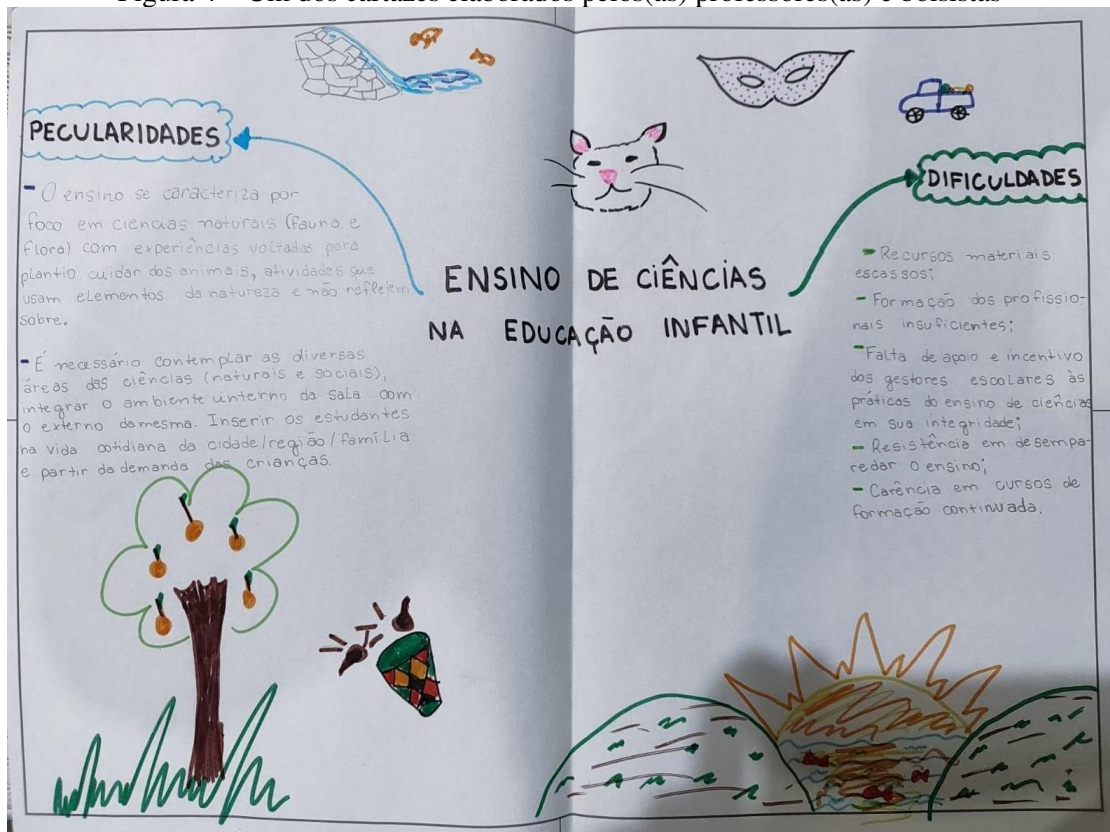 Figura 4 – Um dos cartazes elaborados pelos(as) professores(as) e bolsistas
PECULARIDADES
- O ensino se caracteriza por
foco em ciencias naturais (fauna e
flora) com experiências voltadas para
plantio cuidar dos animais, atividades que
usam elementos da natureza e não refletem
sobre.
- É necessário contemplar as diversas
áreas das ciências (naturais e sociais),
integrar o ambiente interno da sala com
o externo da mesma. Inserir os estudantes
na vida cotidiana da cidade/região/família
e partir da demanda das crianças.
ENSINO DE CIÊNCIAS
NA EDUCAÇÃO INFANTIL
DIFICULDADES
- Recursos materiais
escassos;
- Formação dos profissio-
nais insuficientes;
- Falta de apoio e incentivo
dos gestores escolares às
práticas do ensino de ciências
em sua integridade;
- Resistência em desempa-
redar o ensino;
- Carência em cursos de
formação continuada.